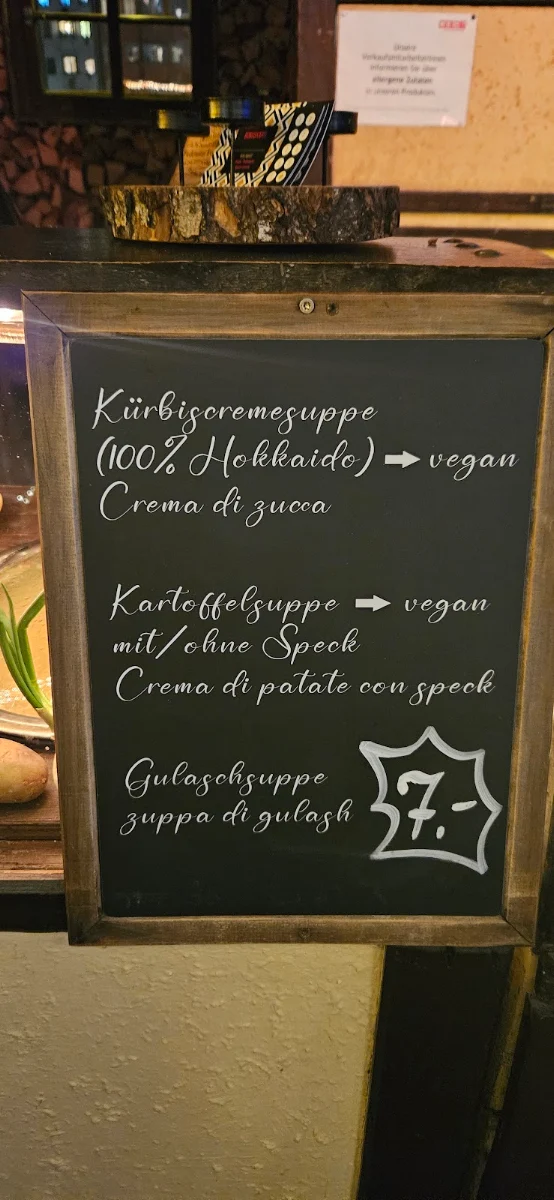 Unsere
Verkaufsmitarbeiterinnen
informieren Sie über
allergene Zutaten
in unseren Produkten.
Kürbiscremesuppe
(100% Hokkaido) ➡ vegan
Crema di zucca
Kartoffelsuppe ➡ vegan
mit/ohne Speck
Crema di patate con speck
Gulaschsuppe
zuppa di gulash
7.-